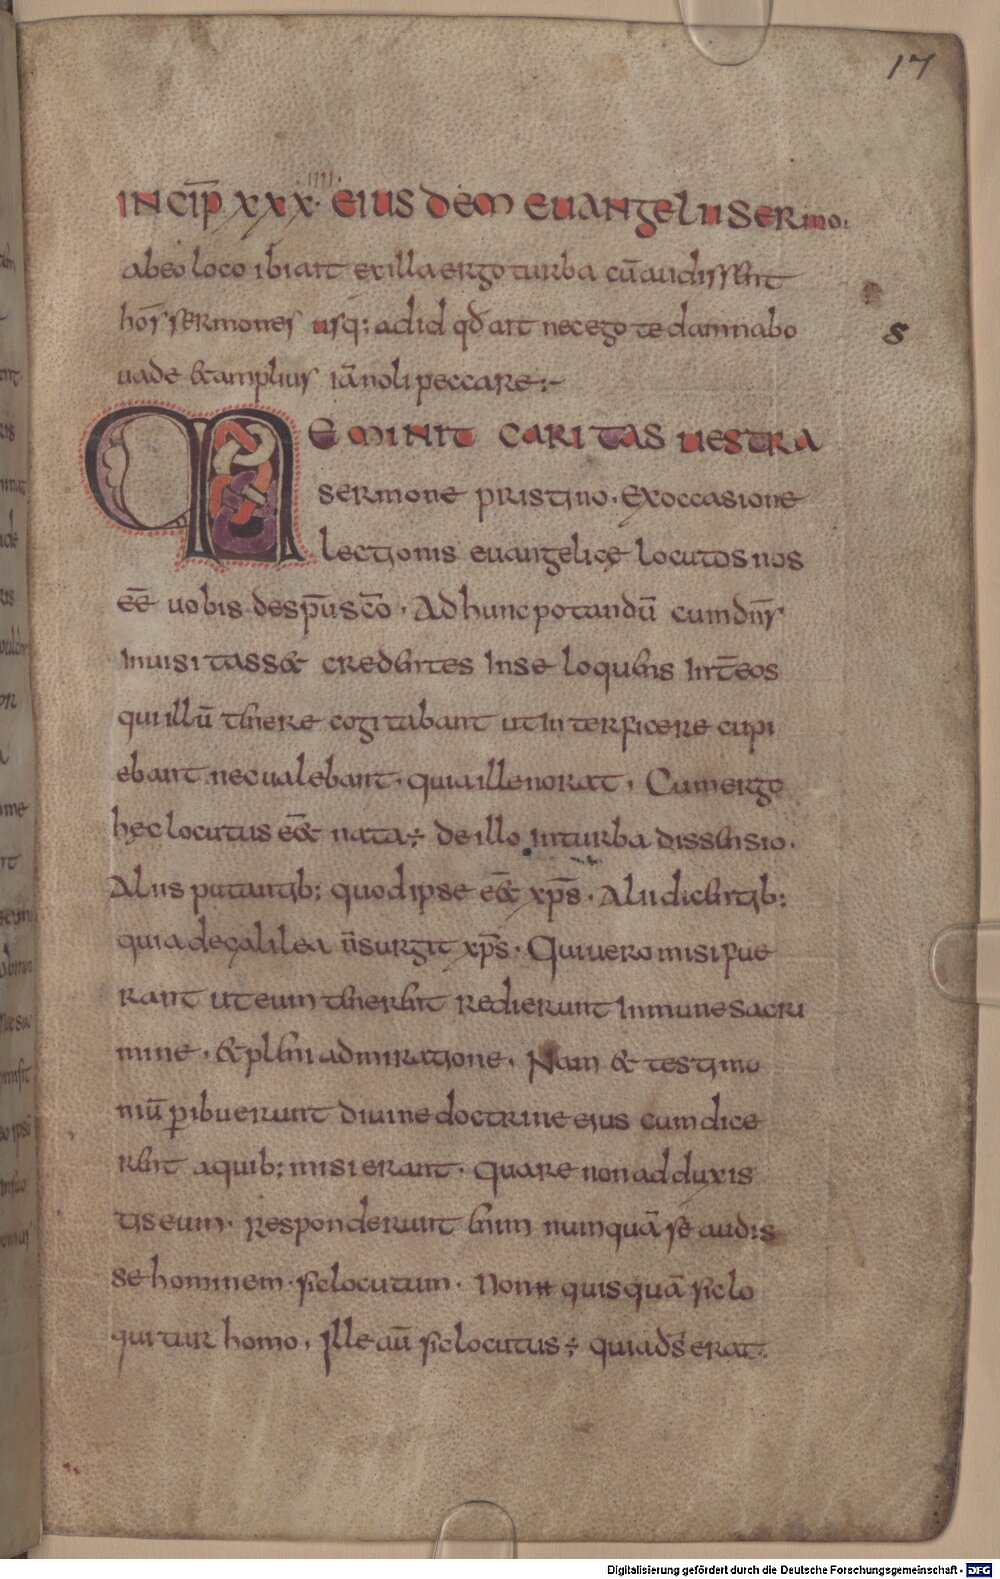 17
INCIP̄ XXX IIII. EIUSDEM EUANGELII SERMO.
ab eo loco ibi ait ex illa ergo turba cū audissent
hos̄ sermones usq; ad id qđ ait nec ego te damnabo
uade & amplius iā noli peccare:~
S
MEMINIT CARITAS UESTRA
sermone pristino. Ex occasione
lectionis euangelicę locutos nos
eē uobis de sp̄u sc̄o. Ad hunc potandū cum dn̄s
inuisitass& credentes in se loquens int̄ eos
qui illū tenere cogitabant ut interficere cupi
ebant nec ualebant. quia ille norat, Cum ergo
hęc locutus eē& nata÷ de illo in turba dissensio.
Aliis putantib; quod ipse eē& xp̄s. Alii dicentib;
quia de galilea n̄ surgit xp̄s. Qui uero misi fue
rant ut eum tenerent redierunt inmunes a cri
mine, & pleni admiratione, Nam & testimo
niū p̱ibuerunt diuine doctrine eius cum dice
rent a quib; misi erant. Quare non adduxis
tis eum. Responderunt enim numquā sē audis
se hominem sic locutum. Non quisquā sic lo
quitur homo, Ille aū sic locutus÷ quia ds̄ erat.
Digitalisierung gefördert durch die Deutsche Forschungsgemeinschaft - DFG